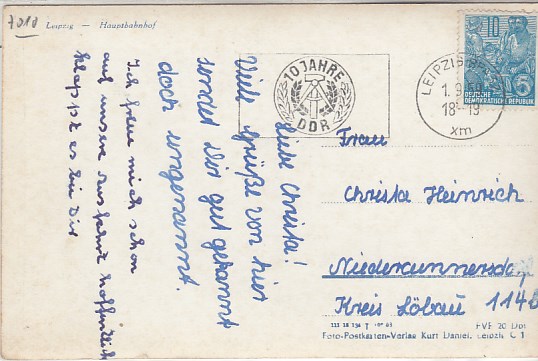 7010
Leipzig — Hauptbahnhof
Liebe Christa!
Viele Grüße von hier
sendet Dir gut gelaunt
doch ungenannt.
Ich freue mich schon
auf unsere Ausfahrt hoffentlich
klappt es bei Dir
10 JAHRE
DDR
LEIPZIG
1.9.
18-19
xm
10
5
DEUTSCHE
DEMOKRATISCHE REPUBLIK
Frau
Christa Heinrich
Niedercunnersdorf
Kreis Löbau 114B
III 18 154
PVF 20 Dpf
Foto-Postkarten-Verlag Kurt Daniel, Leipzig C 1